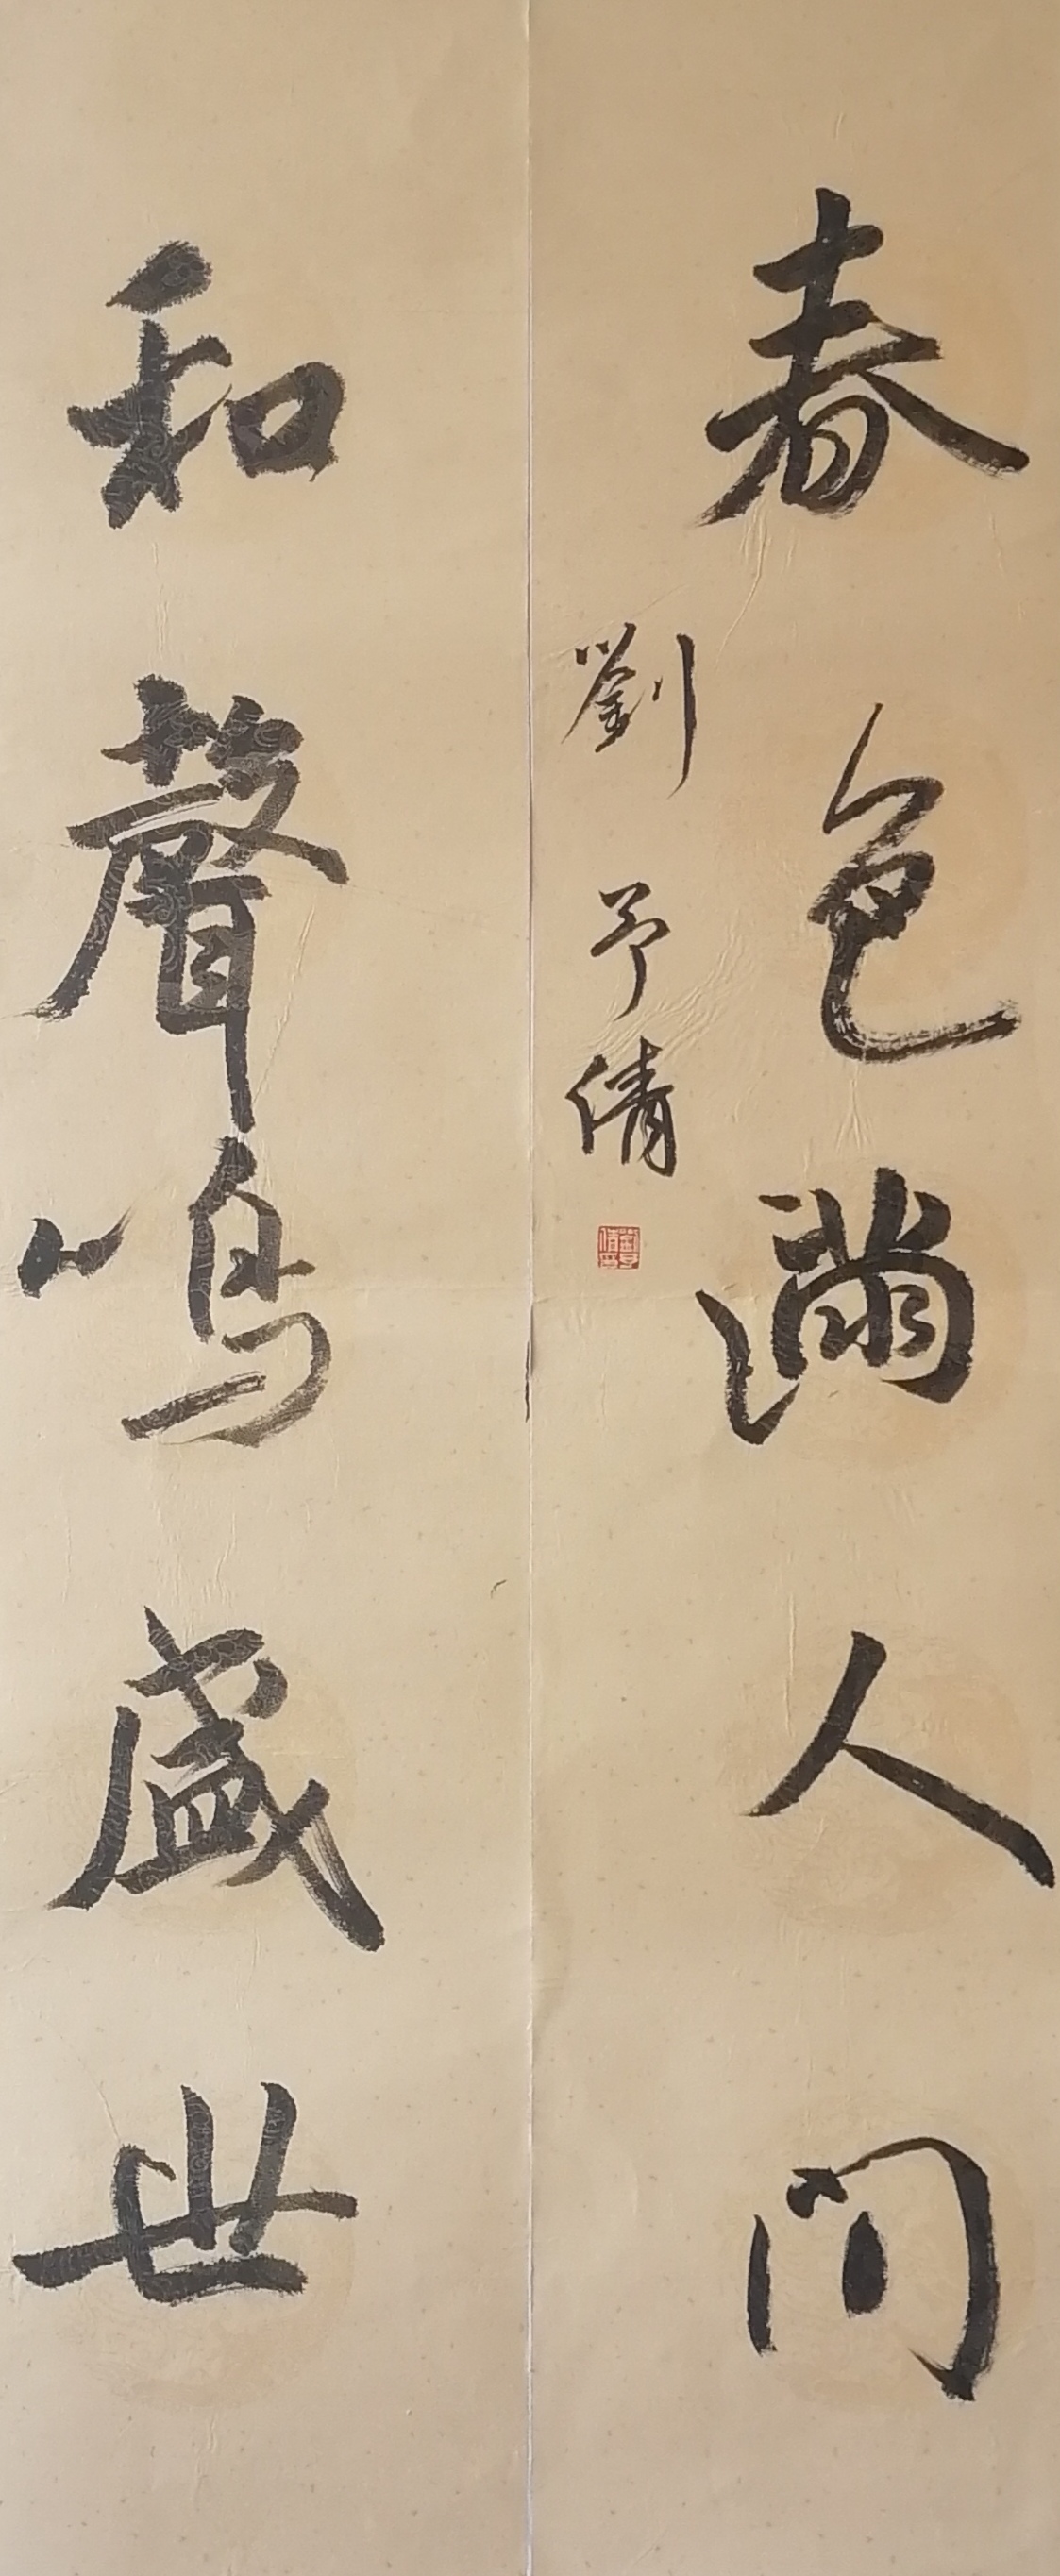 春色滿人间
劉予倩
和聲鳴盛世